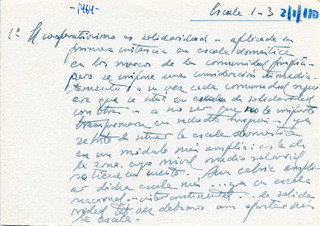 -1964-
Escala 1-3 2/1/
1º El cooperativismo es solidaridad - aplicada en
primera instancia en escala doméstica
en los marcos de la comunidad propia -
pero se impone una consideración
a su vez cada comunidad
que se sitúe en escala de solidaridad
con otra - a no ser que no le importe
transformarse en reducto burgués - y a
se trate de situar la escala doméstica
en un módulo más amplio: es la de
la zona, cuyo nivel medio salarial
se tiene en cuenta. Aun cabría ampli
ar dicha escala más ... ya en escala
nacional ... continental ... la solida
ridad debemos
la escala.